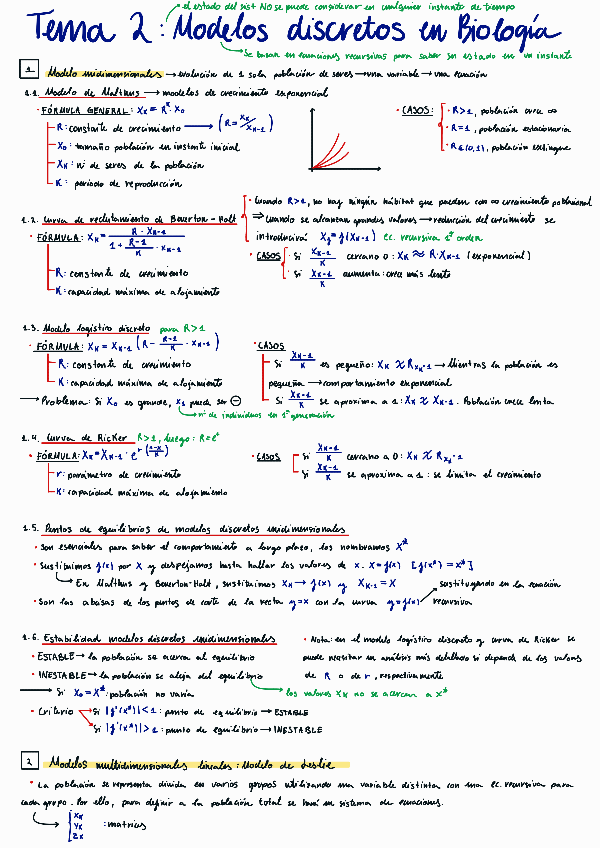 el estado del sist NO se puede considerar en cualquier instante de tiempo
Tema 2: Modelos discretos en Biología
Se basan en ecuaciones recursivas para saber su estado en un instante
1 Modelo unidimensionales → evolución de 1 sola población de seres → una variable → una ecuación
1.1. Modelo de Malthus → modelos de crecimiento exponencial
· FÓRMULA GENERAL: Xk = R^k X0
R: constante de crecimiento → (R = Xk/Xk-1)
X0: tamaño población en instante inicial
Xk: nº de seres de la población
K: periodo de reproducción
· CASOS: · R>1, población crece ∞
· R=1, población estacionaria
· R∈(0,1), población extingue
1.2. Curva de reclutamiento de Beverton-Holt
· FÓRMULA: Xk = R · Xk-1 / (1 + (R-1)/K · Xk-1)
R: constante de crecimiento
K: capacidad máxima de alojamiento
· Cuando R>1, no hay ningún hábitat que pueden con ∞ crecimiento poblacional
⇒ Cuando se alcanzan grandes valores → reducción del crecimiento se
introducirá Xk = f(Xk-1) ec. recursiva 1er orden
· CASOS · Si Xk-1/K cercano a 0: Xk ≈ R·Xk-1 (exponencial)
· Si Xk-1/K aumenta: crece más lento
1.3. Modelo logístico discreto para R>1
· FÓRMULA: Xk = Xk-1 (R - (R-1)/K · Xk-1)
R: constante de crecimiento
K: capacidad máxima de alojamiento
→ Problema: Si X0 es grande, X1 puede ser ⊖
nº de individuos en 1ª generación
· CASOS
Si Xk-1/K es pequeño: Xk ≈ R Xk-1 → Mientras la población es
pequeña → comportamiento exponencial
Si Xk-1/K se aproxima a 1: Xk ≈ Xk-1. Población crece lenta
1.4. Curva de Ricker R>1, luego: R=e^r
· FÓRMULA: Xk = Xk-1 · e^r(1-x/K)
r: parámetro de crecimiento
K: capacidad máxima de alojamiento
· CASOS Si Xk-1/K cercano a 0: Xk ≈ R Xk-1
Si Xk-1/K se aproxima a 1: se limita el crecimiento
1.5. Puntos de equilibrios de modelos discretos unidimensionales
· Son esenciales para saber el comportamiento a largo plazo, los nombramos X*
· Sustituimos f(x) por X y despejamos hasta hallar los valores de x. X=f(x) [f(x*) = x*]
En Malthus y Beverton-Holt, sustituimos Xk → f(x) y Xk-1 = X
· Son las abcisas de los puntos de corte de la recta y=x con la curva y=f(x)
sustituyendo en la ecuación
recursiva
1.6. Estabilidad modelos discretos unidimensionales
· ESTABLE → la población se acerca al equilibrio
· INESTABLE → la población se aleja del equilibrio
los valores Xk no se acercan a x*
→ Si X0 = X*: población no varía
· Criterio Si |f'(x*)| < 1: punto de equilibrio → ESTABLE
Si |f'(x*)| > 1: punto de equilibrio → INESTABLE
· Nota: en el modelo logístico discreto y curva de Ricker se
puede necesitar un análisis más detallado si depende de los valores
de R o de r, respectivamente
2 Modelos multidimensionales lineales: Modelo de Leslie
· La población se representa divida en varios grupos utilizando una variable distinta con una ec. recursiva para
cada grupo. Por ello, para definir a la población total se hará un sistema de ecuaciones.
Xk
Yk : matrices
Zk